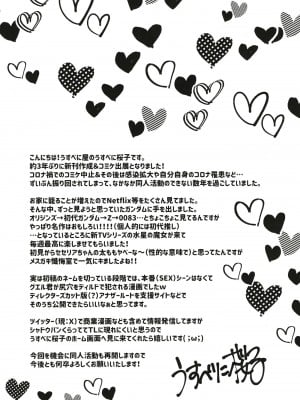 こんにちは！うすべに屋のうすべに桜子です。
約3年ぶりに新刊作成&コミケ出展となりました！
コロナ禍でのコミケ中止&その後は感染拡大や自分自身のコロナ罹患など…
ずいぶん振り回されてしまって、なかなか同人活動のできない数年を過ごしていました。
お家に籠ることが増えたのでNetflix等をたくさん見てました。
そんな中、ずっと見ようと思っていたガンダムに手を出しました。
オリジンズ→初代ガンダム→Z→0083…とちょこちょこ見てるんですが
やっぱり名作はおもしろい!!!!(個人的には初代推し)
…となっているところに新TVシリーズの水星の魔女が来て
毎週最高に楽しませてもらいました！
初見からセセリアちゃんの太ももヤベぇ〜〜(性的な意味で)と思ってたんですが
メスガキ懺悔室で一気にキましたよね!!
実は初稿のネームを切っている段階では、本番(SEX)シーンはなくて
グエル君が尻穴をディルドで犯される漫画でしたw
ディレクターズカット版(?)アナザールートを支援サイトなどで
そのうち公開できたらいいなぁと思ってます。
ツイッター(現：X)で商業漫画なども含めて情報発信してますが
シャドウバンくらっててTLに現れにくいと思うので
うすべに桜子のホーム画面へ見に来てくれたら嬉しいです(；ω；)
今回を機会に同人活動も再開しますので
今後とも何卒よろしくお願いいたします！
うすべに桜子